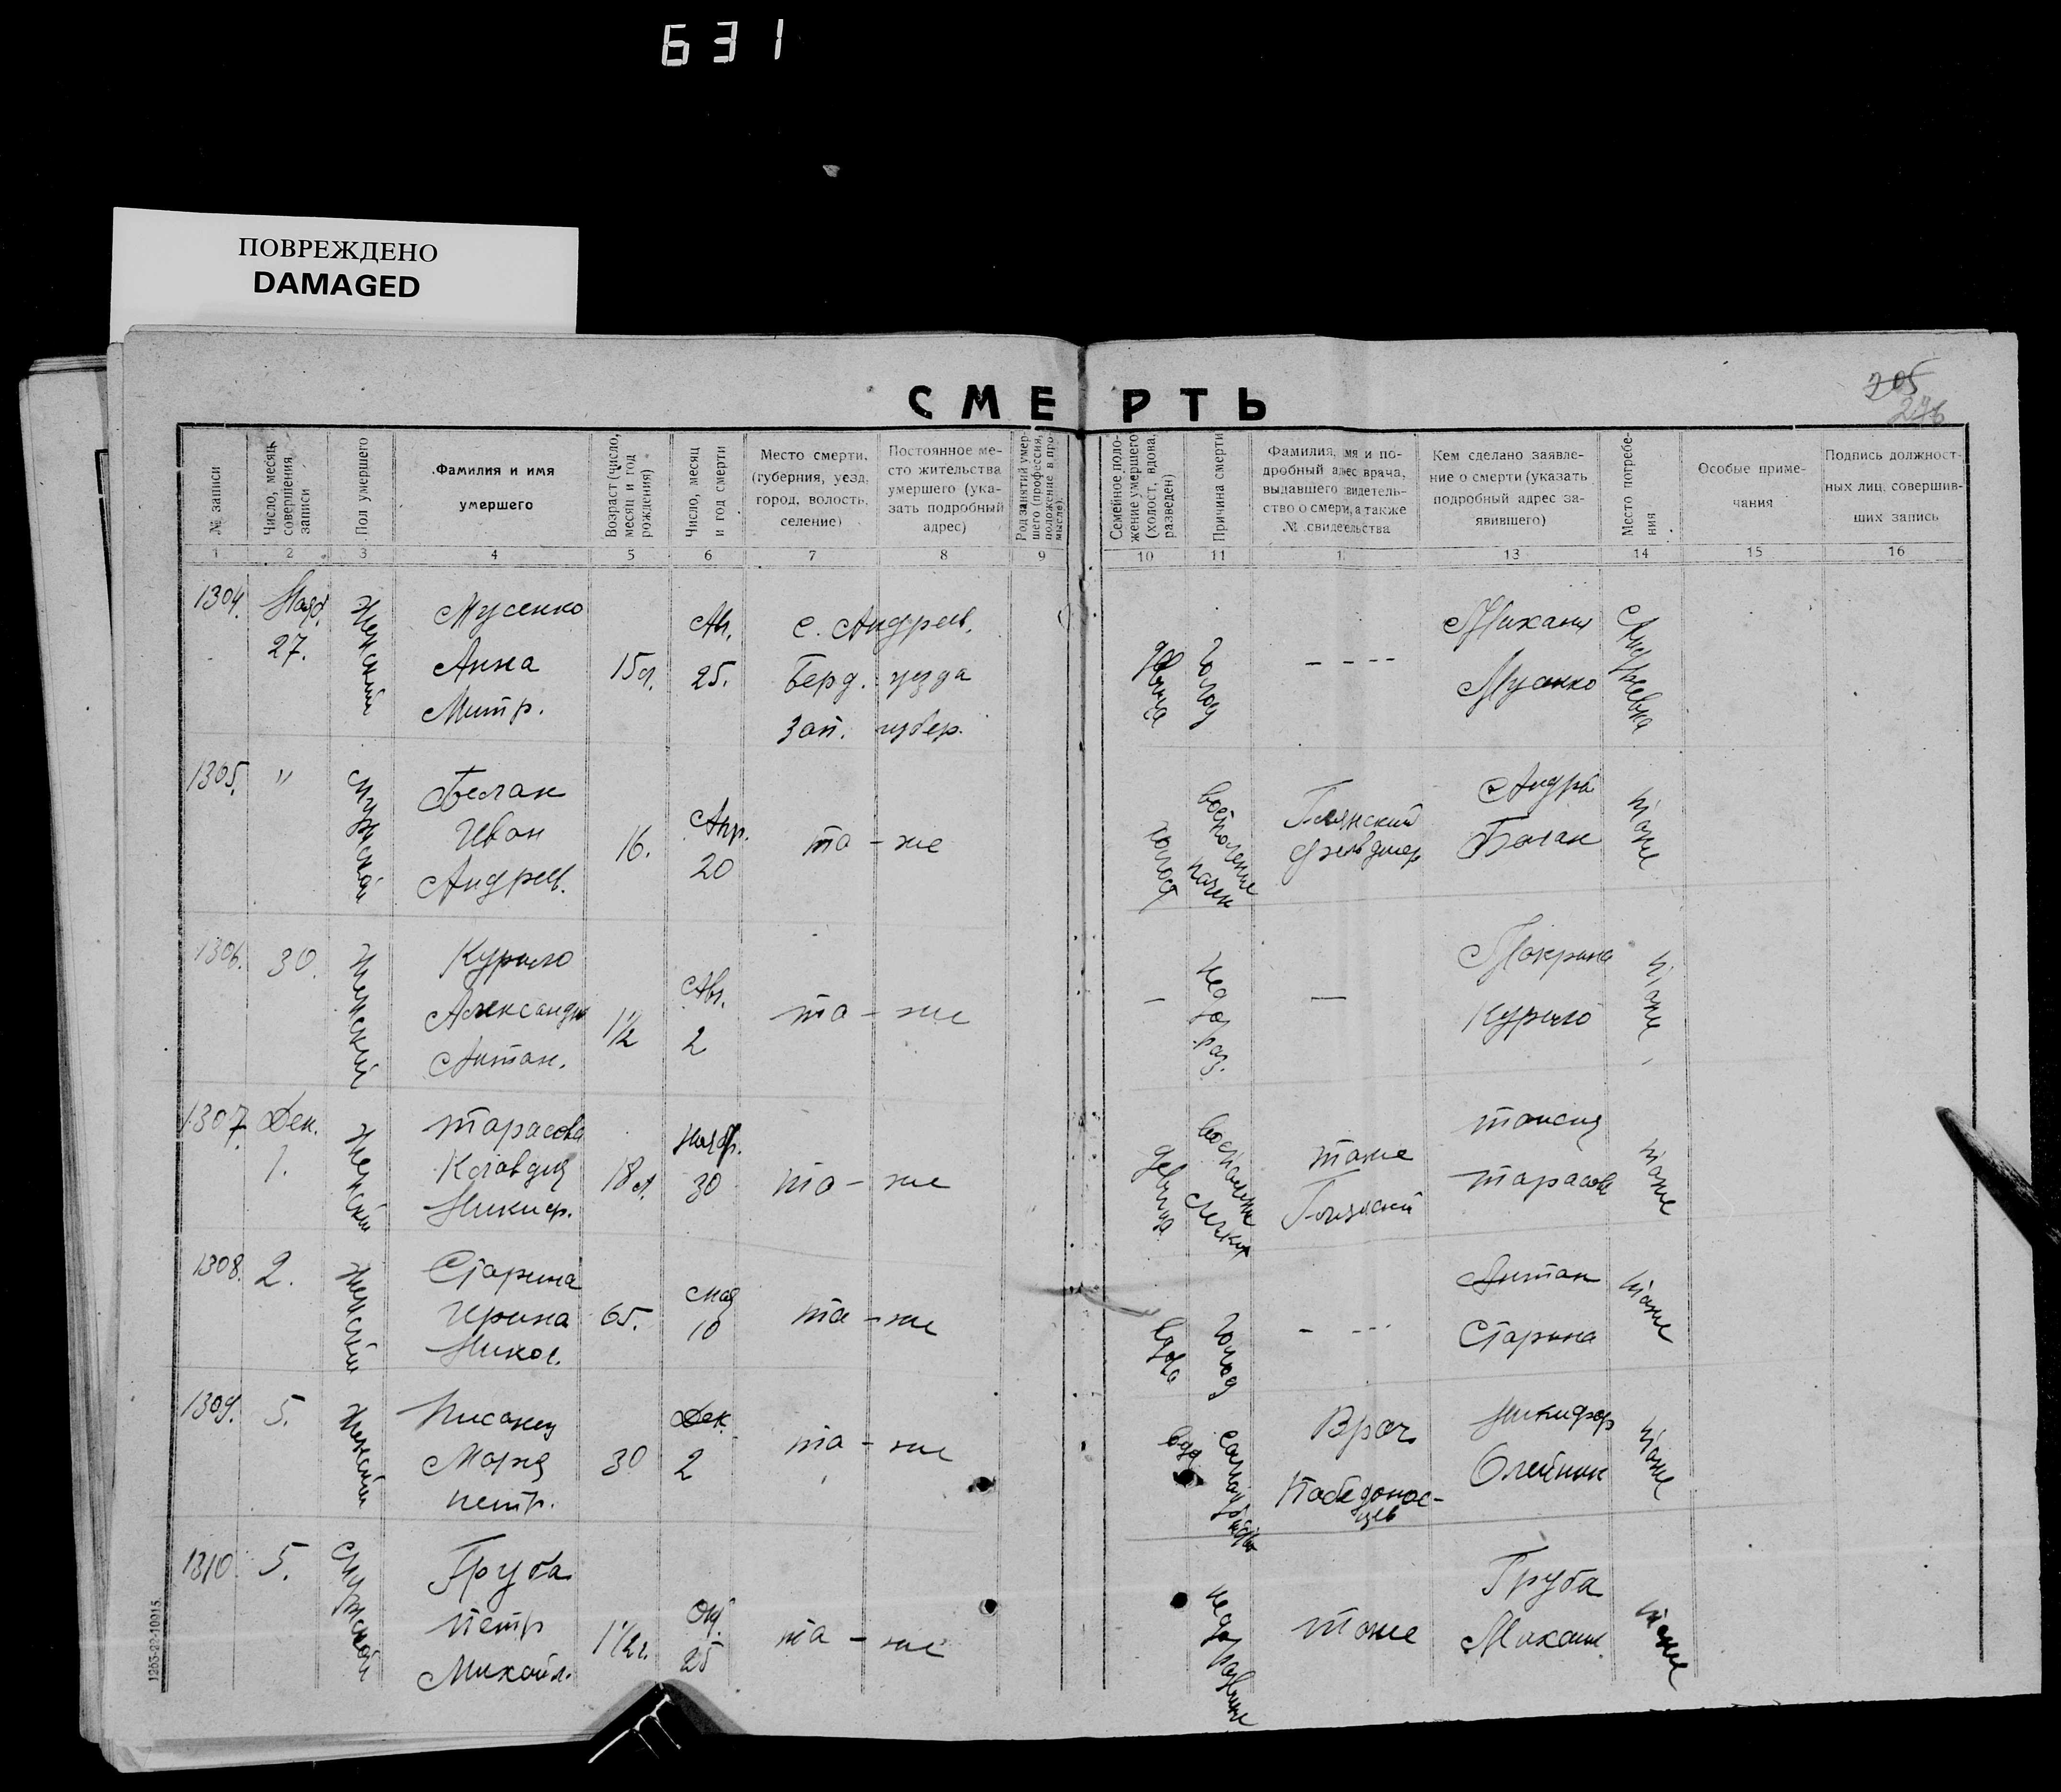 631
ПОВРЕЖДЕНО
DAMAGED
СМЕРТЬ
205
№ записи
Число, месяц совершения записи
Пол умершего
Фамилия и имя умершего
Возраст (число, месяц и год рождения)
Число, месяц и год смерти
Место смерти, (губерния, уезд, город, волость, селение)
Постоянное место жительства умершего (указать подробный адрес)
Род занятий умершего (профессия, положение в промысле).
Семейное положение умершего (холост, вдова, разведен)
Причина смерти
Фамилия, имя и подробный адрес врача, выдавшего свидетельство о смерти, а также № свидетельства
Кем сделано заявление о смерти (указать подробный адрес заявившего)
Место погребения
Особые примечания
Подпись должностных лиц, совершивших запись
1 2 3 4 5 6 7 8 9 10 11 1 13 14 15 16
1304. Нояб. 27. Женский
Мусенко
Анна
Митр.
15 л. Авг. 25.
с. Андреев.
Берд. уезда
Зап. губер.
девица голод - - - -
Михаил
Мусенко
Андреевка
1305. " Мужской
Белан
Иван
Андреев.
16. Апр. 20 то - же
холост воспаление почек
Глянский
фельдшер
Андрей
Белан
тоже
1306. 30. Женский
Курило
Александра
Антон.
1½ Авг. 2 то - же
— недораз. —
Мокрина
Курило
тоже
1307. Дек. 1. Женский
Тарасова
Клавдия
Никиф.
18 л. Нояб. 30 то - же
девица воспаление легких
тоже
Глянский
Таисия
Тарасова
тоже
1308. 2. Женский
Старина
Ирина
Никол.
65. мая 10 то - же
вдова голод - - - -
Антон
Старина
тоже
1309. 5. Женский
Мария
Петр.
30 Дек. 2 то - же
вдо
Врач
Победонос-
цев
Никифор
Олейник
тоже
1310. 5. Мужской
Груба
Петр
Михайл.
1½ г. Окт. 25 то - же
недоразвитие
тоже
Груба
Михаил.
тоже
1263-22-10915.